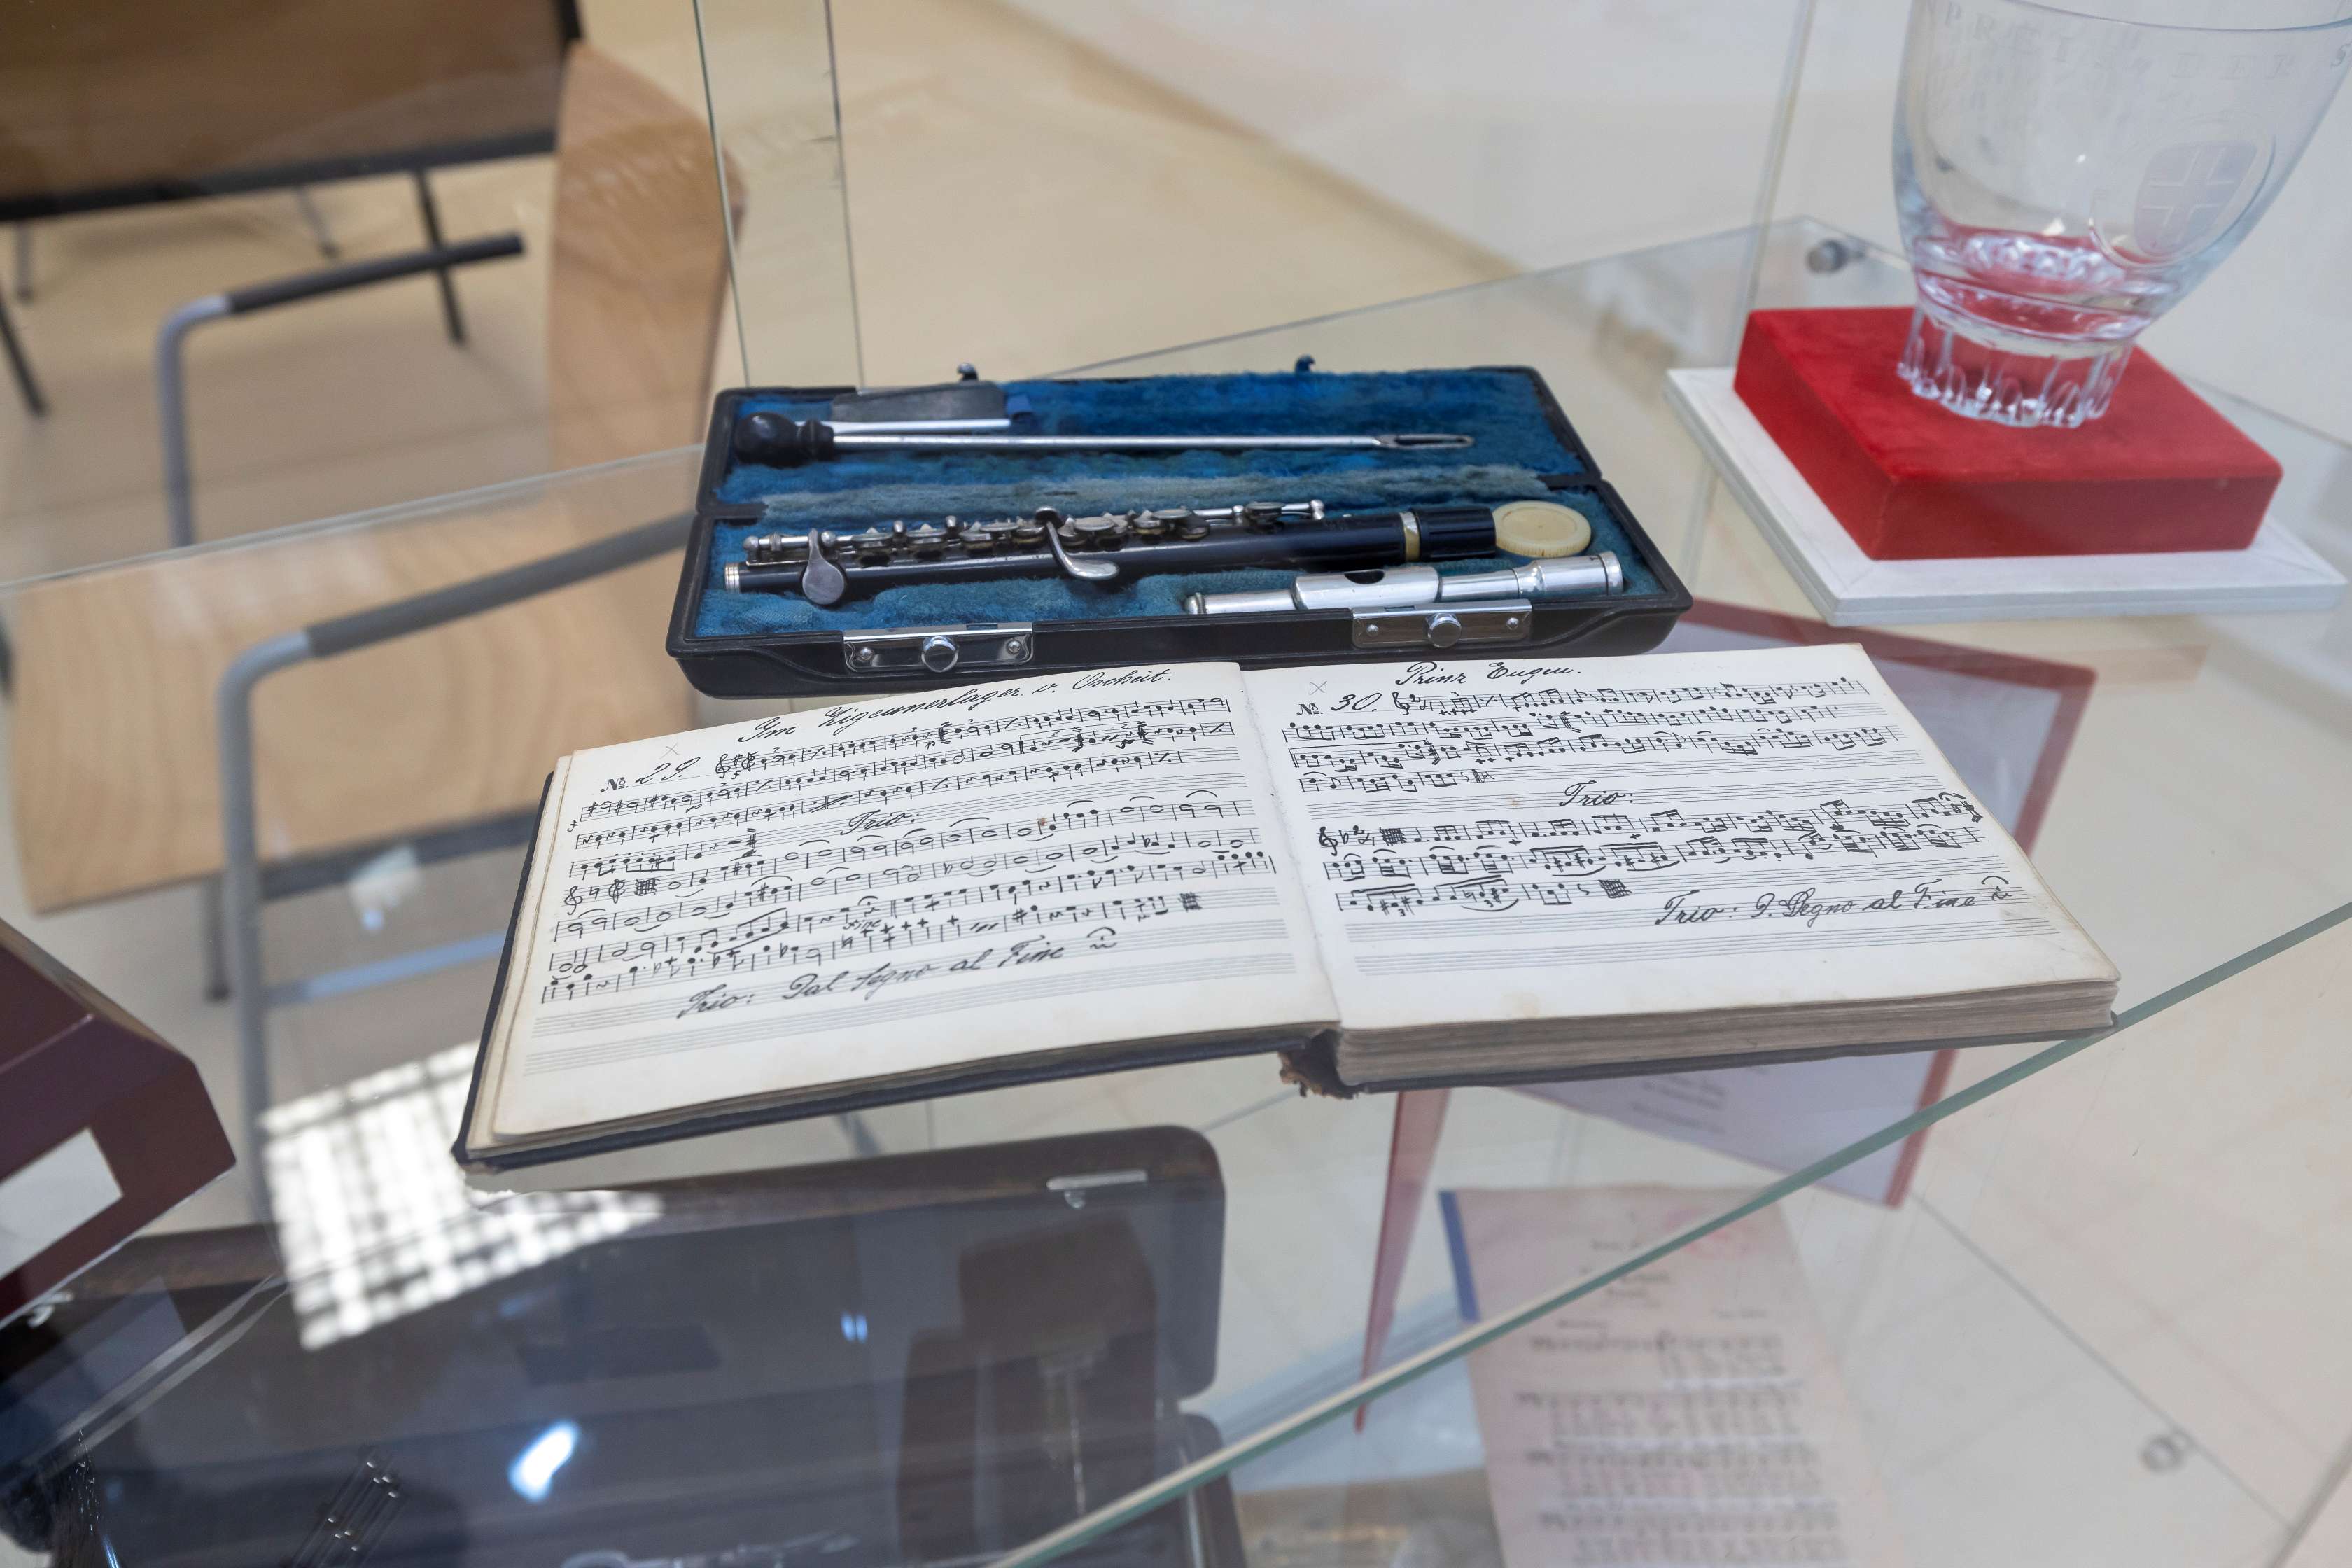 Im Zigeunerlager v. Oscheit.
№ 29.
Trio:
Fine
Trio: Dal Segno al Fine
Prinz Eugen.
№ 30.
Trio:
Trio: D. Segno al Fine